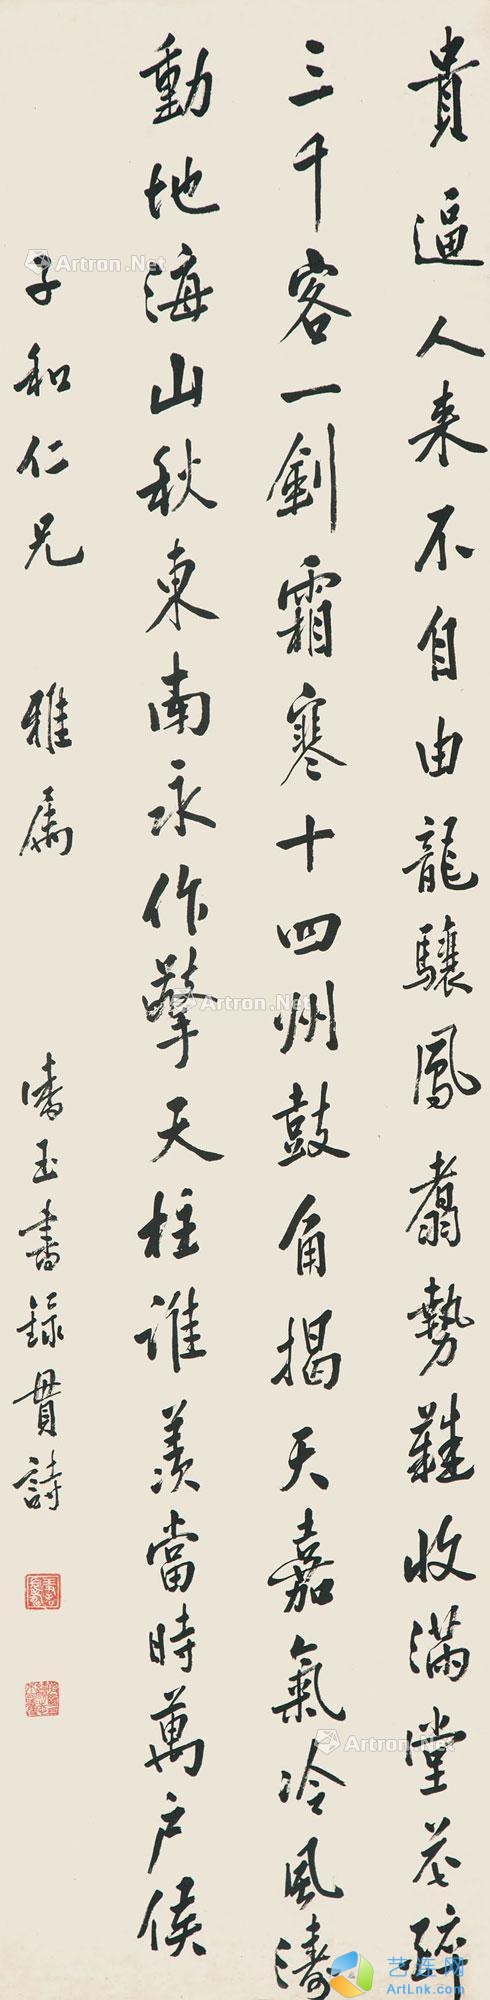 貴逼人来不自由龍驤鳳翥勢難收滿堂花醉
三千客一劍霜寒十四州鼓角揭天嘉氣冷風濤
動地海山秋東南永作擎天柱誰羨當時萬户侯
子和仁兄 雅屬 玉書錄貫詩
Artron.Net
Artron.Net
Artron.Net
Artron.Net
艺连网
ArtLnk.com